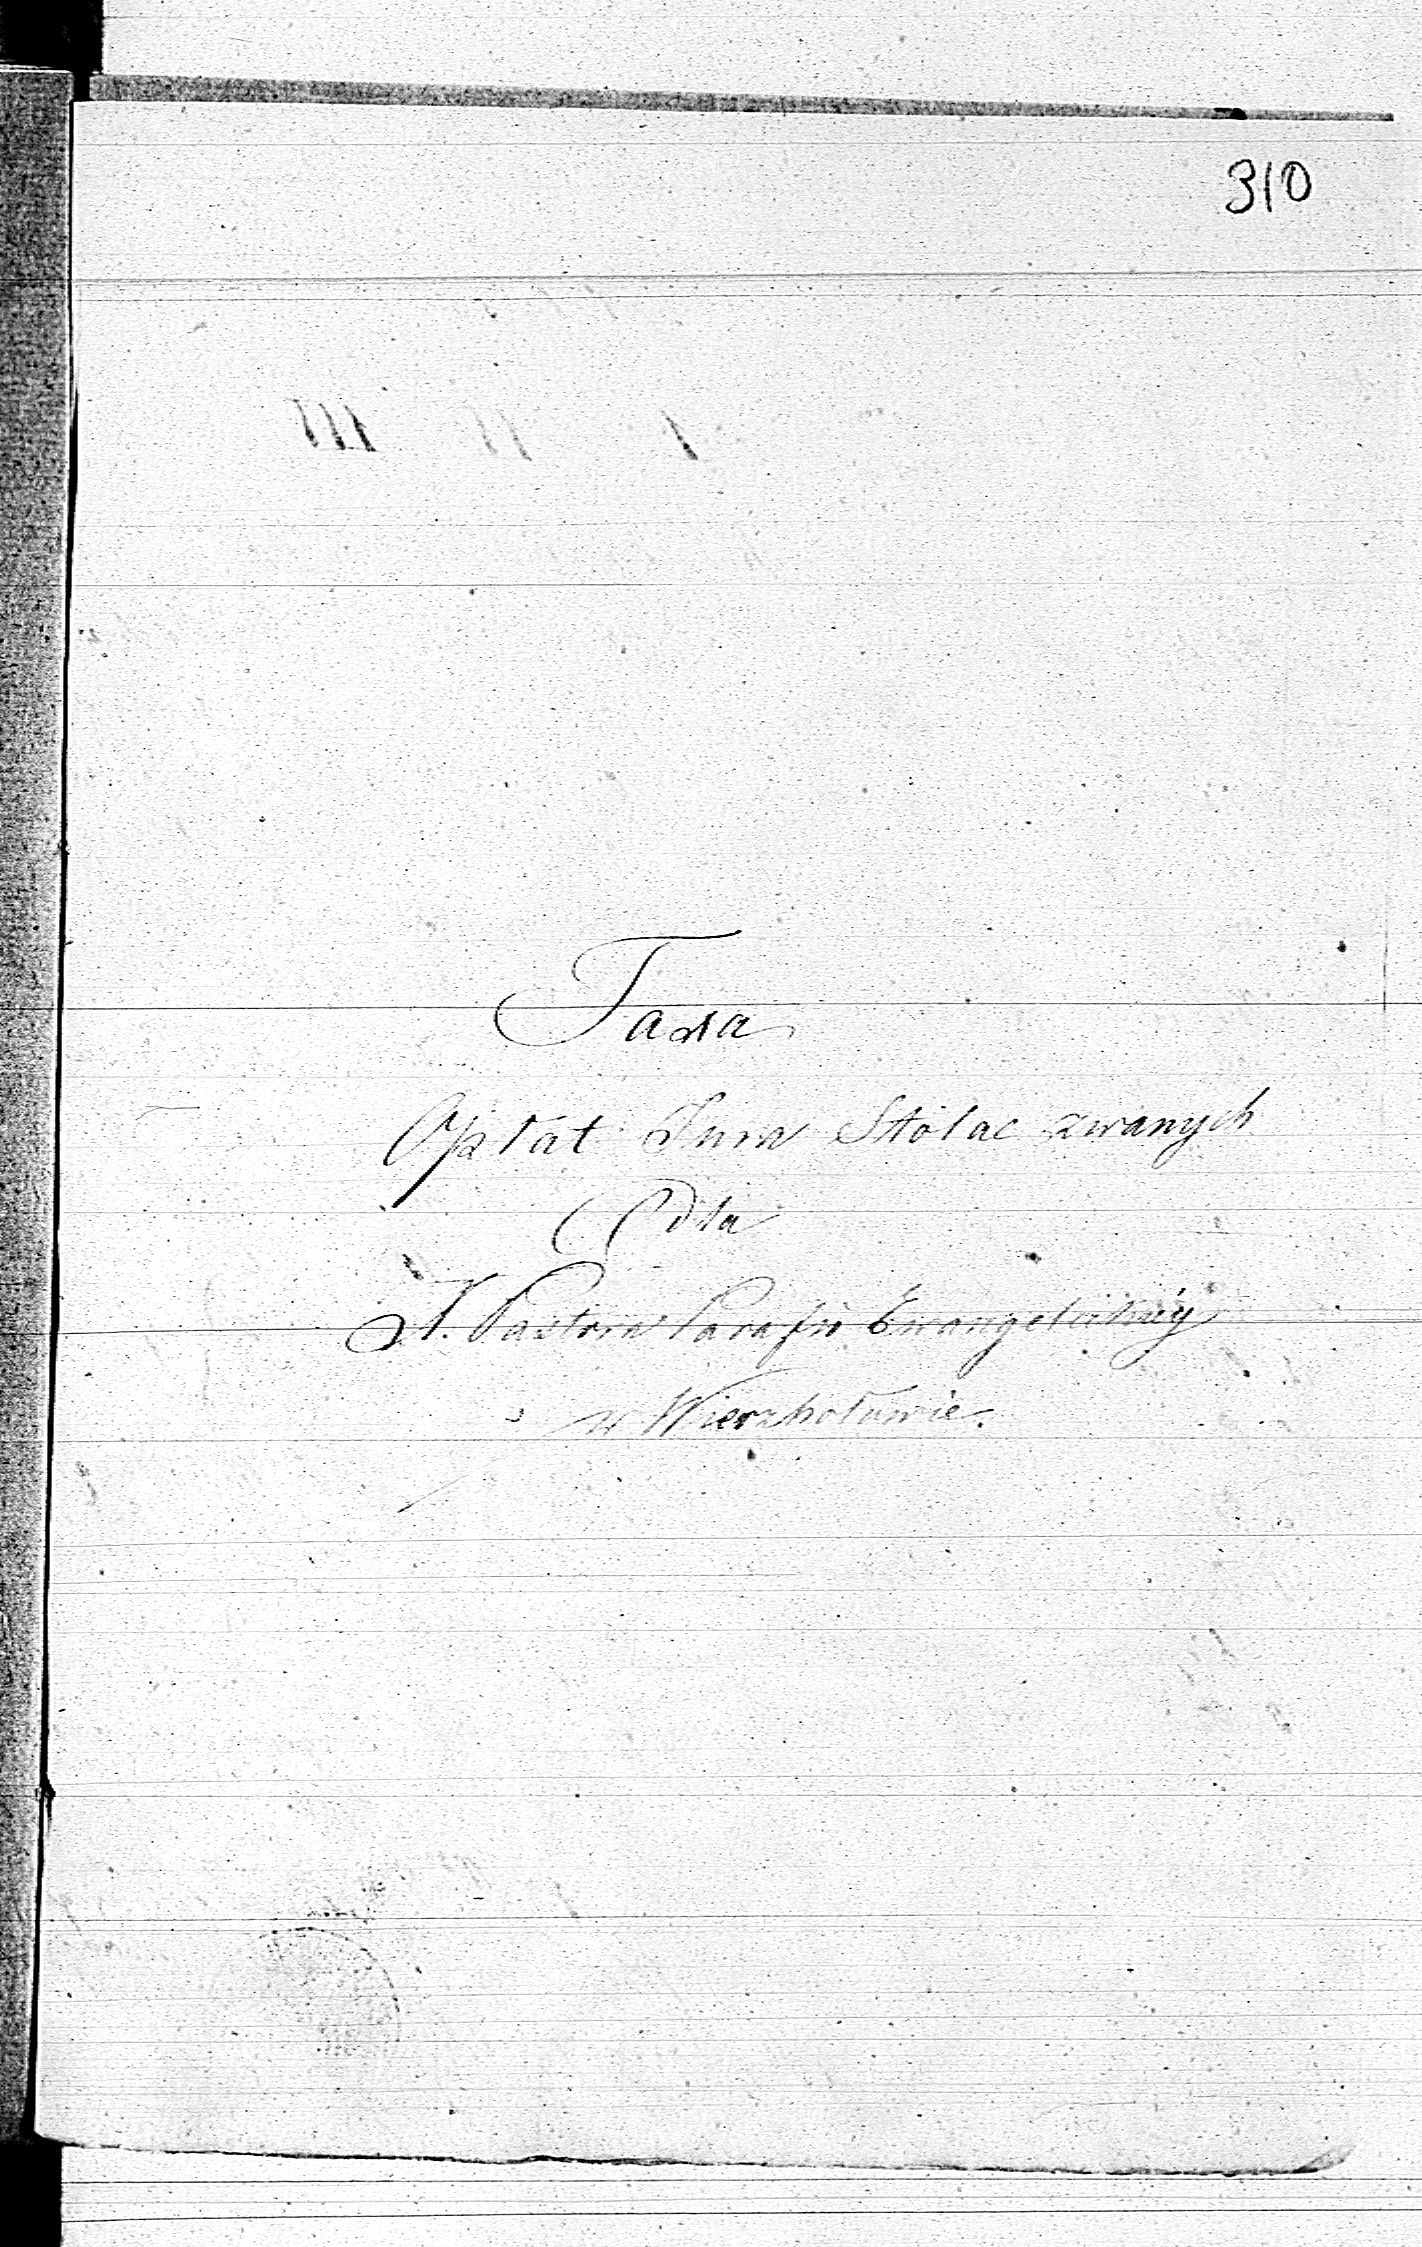 310
Taxa
Opłat Jura Stolae zwanych
dla
X. Pastora Parafii Ewangelickiéy
w Wierzbołowie.